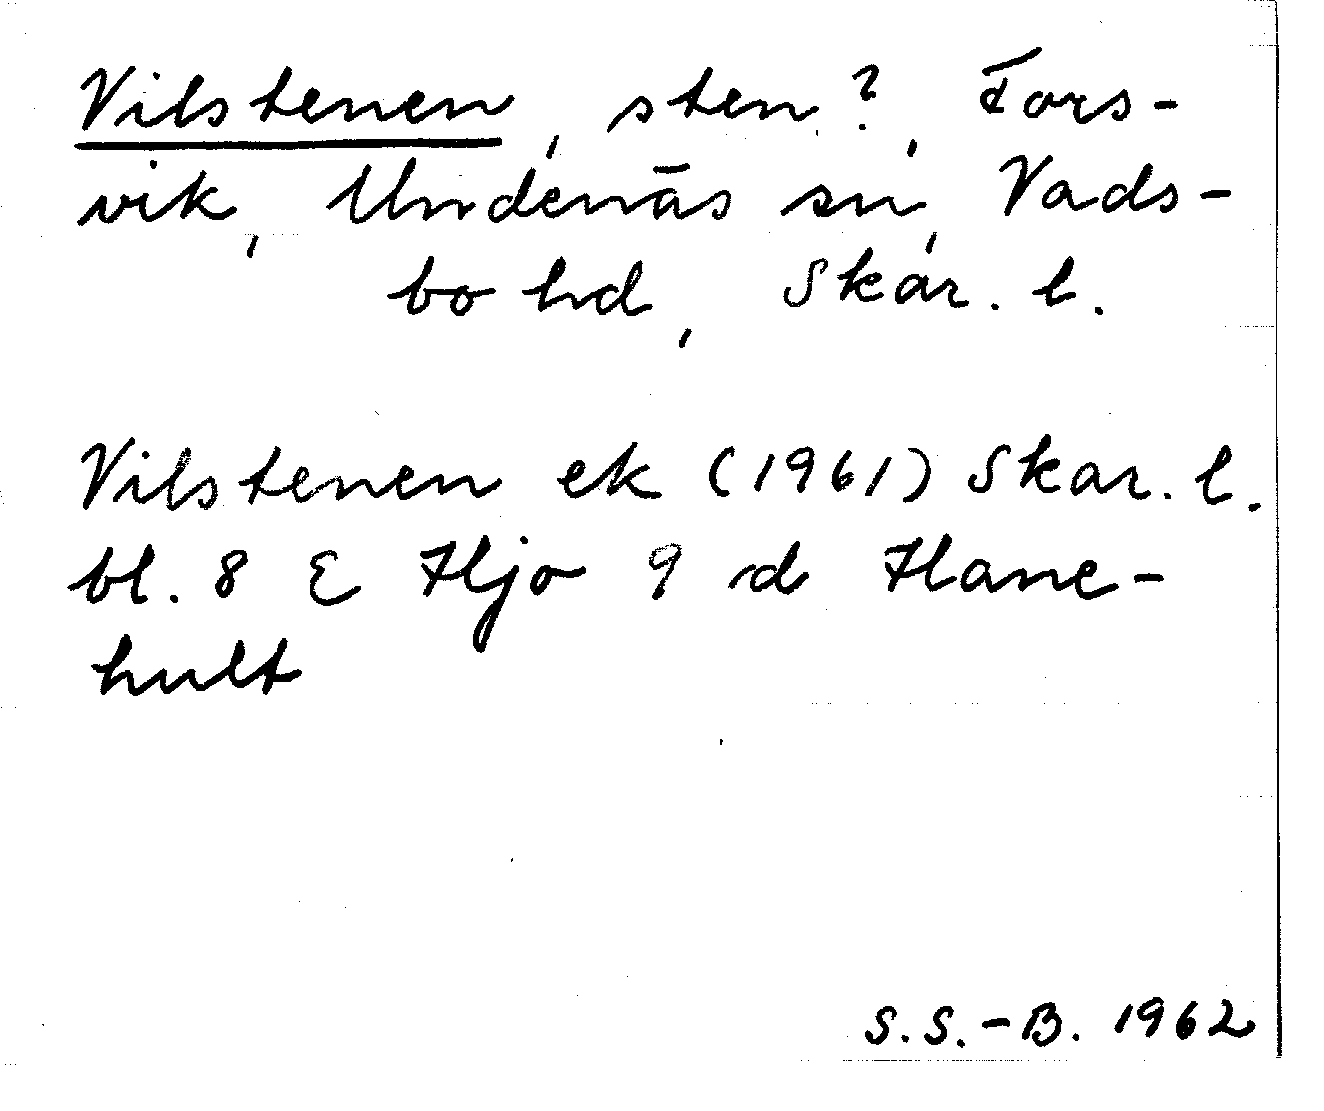 Vilstenen, sten?, Fors-
vik, Undenäs sn, Vads-
bo hd, Skar. l.
Vilstenen ek (1961) Skar. l.
bl. 8 E Hjo 9 d Hane-
hult
S.S.-B. 1962